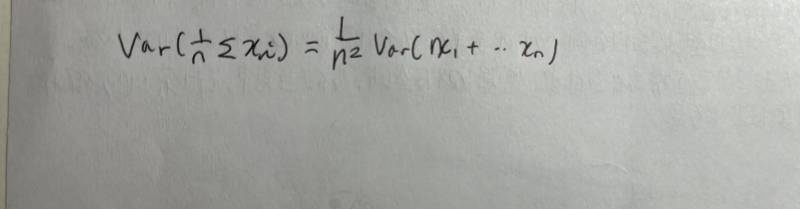 Var(1/n Σ xi) = 1/n² Var(x₁ + ·· xₙ)